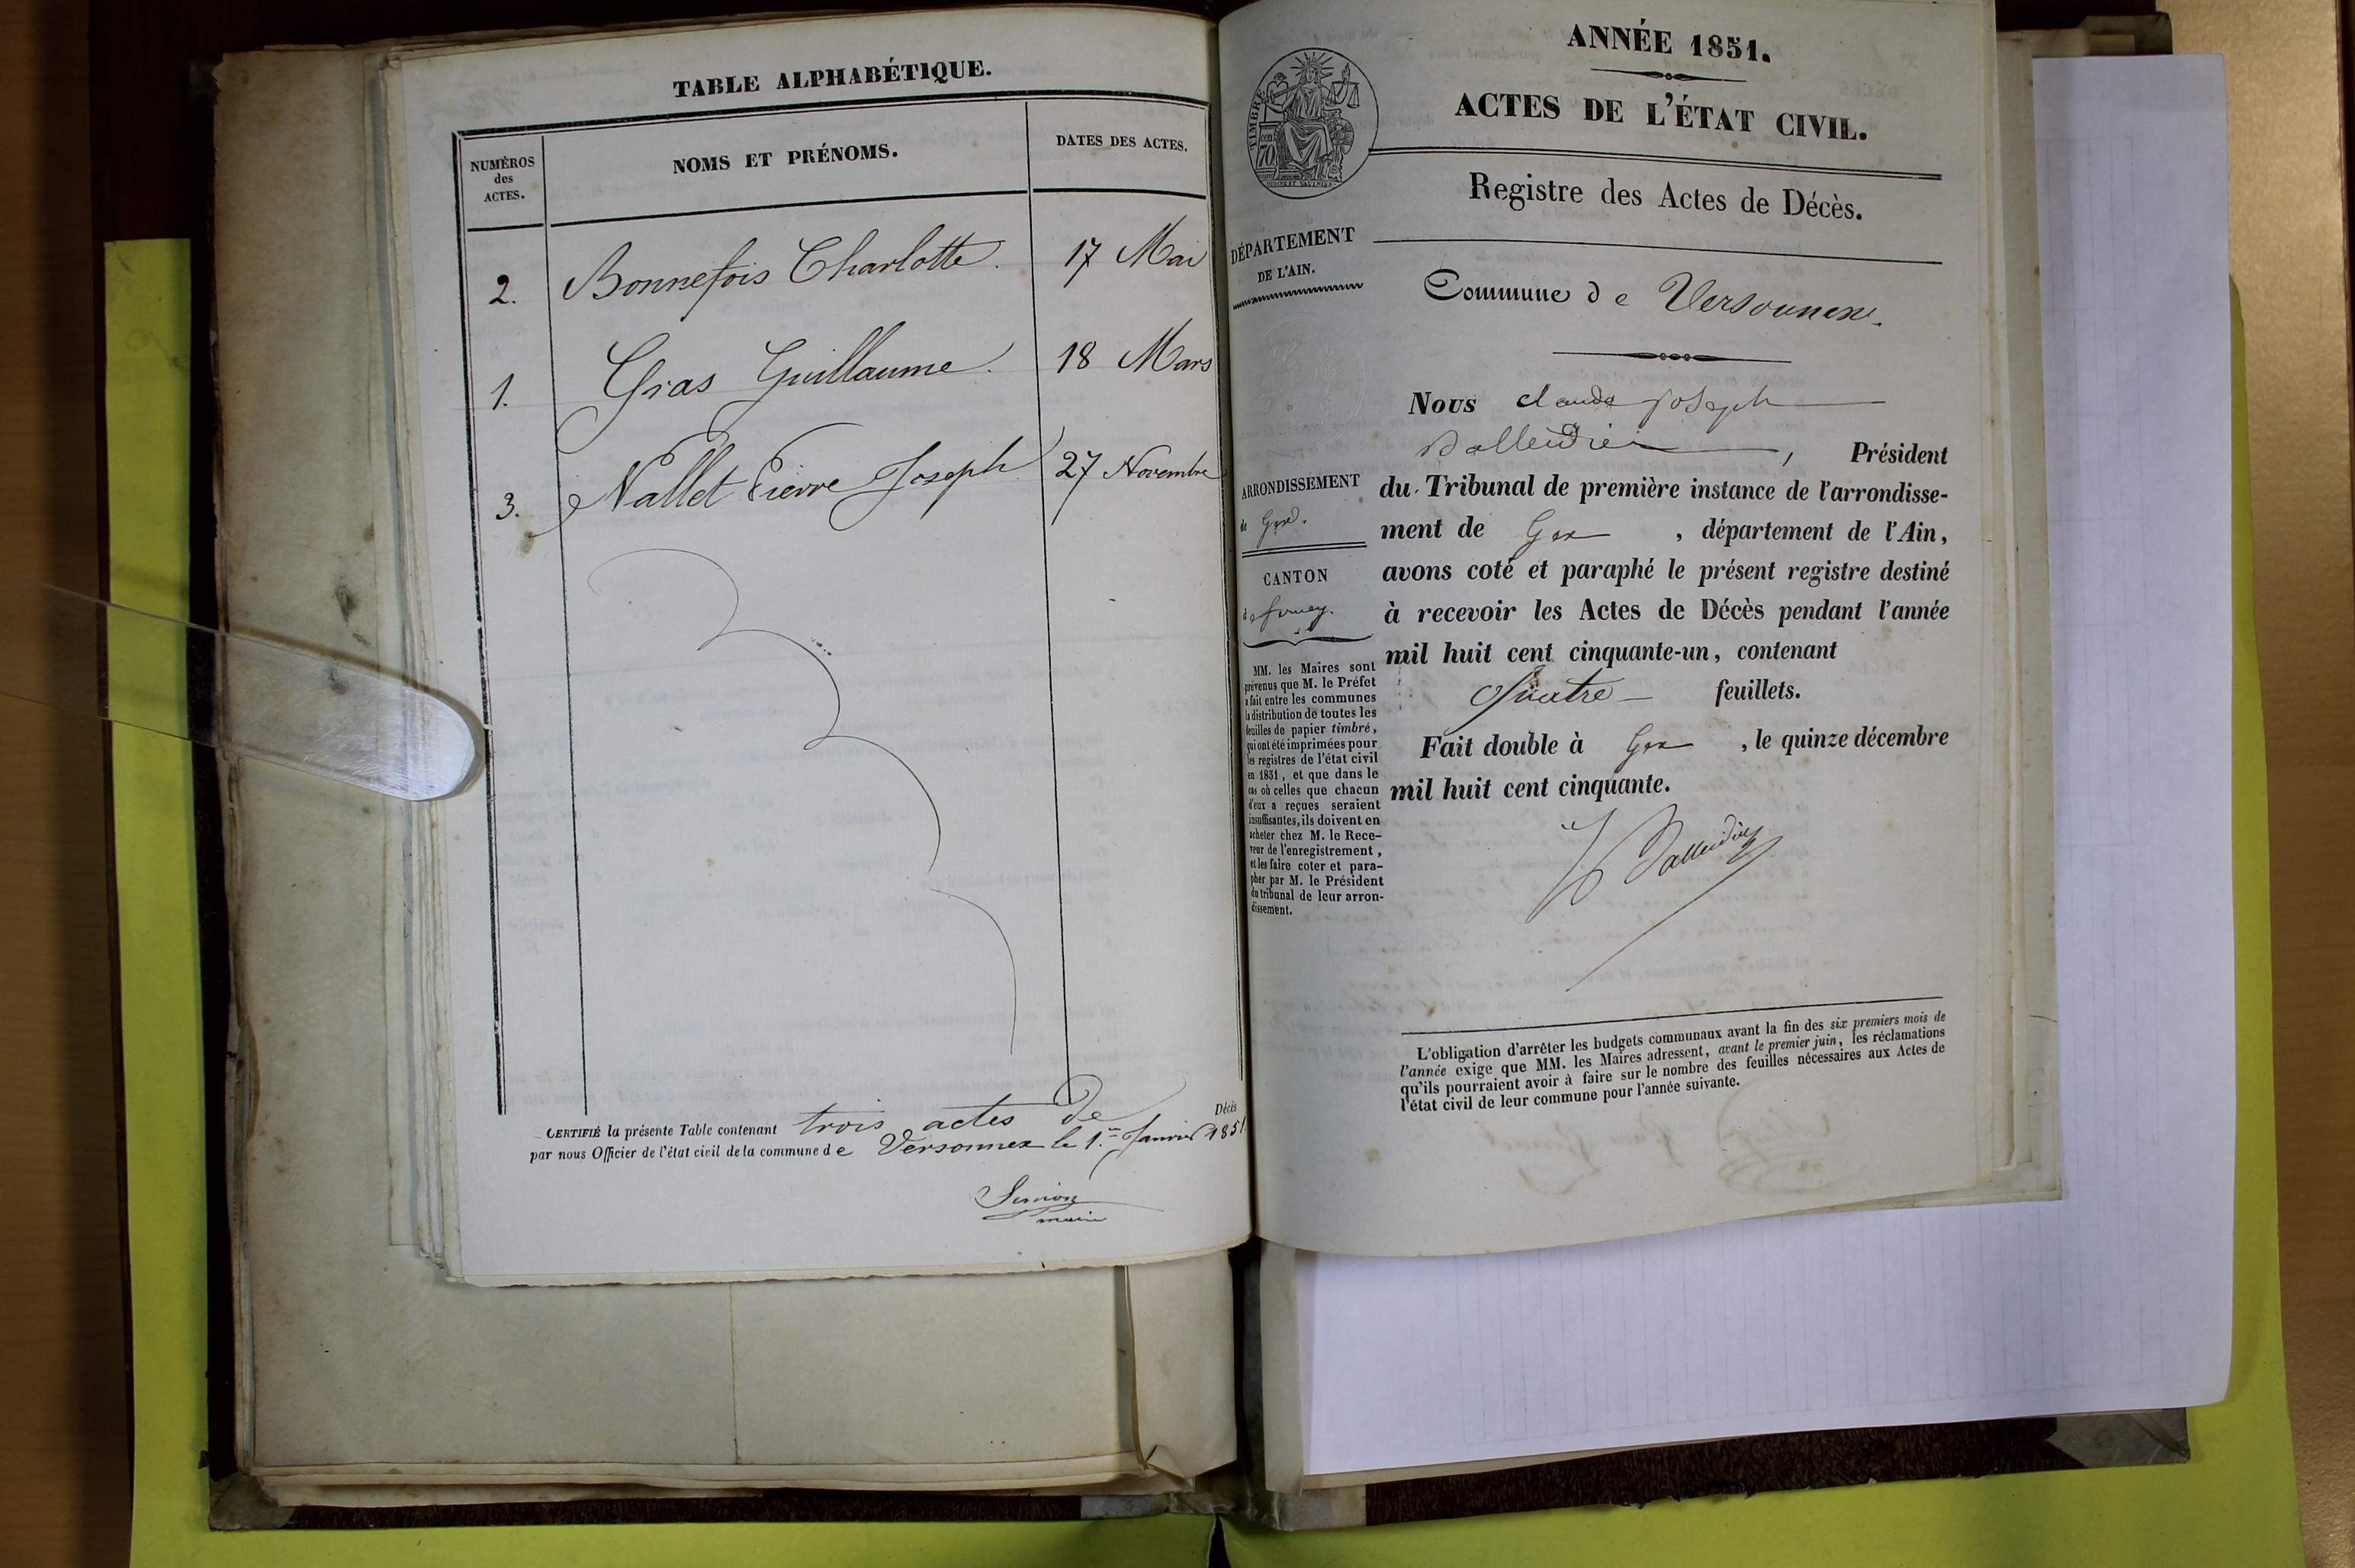 TABLE ALPHABÉTIQUE.
NUMÉROS
des
ACTES.
NOMS ET PRÉNOMS.
DATES DES ACTES.
2. Bonnefois Charlotte. 17 Mai
1. Gras Guillaume. 18 Mars
3. Nallet Pierre Joseph 27 Novembre
CERTIFIÉ la présente Table contenant trois actes de Décès
par nous Officier de l'état civil de la commune de Versonnex le 1er Janvier 1851
maire
ANNÉE 1851.
ACTES DE L'ÉTAT CIVIL.
TIMBRE
70
Registre des Actes de Décès.
DÉPARTEMENT
DE L'AIN.
Commune de Versonnex.
ARRONDISSEMENT
de Gex.
CANTON
de
MM. les Maires sont
prévenus que M. le Préfet
a fait entre les communes
la distribution de toutes les
feuilles de papier timbré,
qui ont été imprimées pour
les registres de l'état civil
en 1851, et que dans le
cas où celles que chacun
d'eux a reçues seraient
insuffisantes, ils doivent en
acheter chez M. le Rece-
veur de l'enregistrement,
et les faire coter et para-
pher par M. le Président
du tribunal de leur arron-
dissement.
Nous claude joseph
, Président
du Tribunal de première instance de l'arrondisse-
ment de Gex , département de l'Ain,
avons coté et paraphé le présent registre destiné
à recevoir les Actes de Décès pendant l'année
mil huit cent cinquante-un, contenant
Quatre feuillets.
Fait double à Gex , le quinze décembre
mil huit cent cinquante.
L'obligation d'arrêter les budgets communaux avant la fin des six premiers mois de
l'année exige que MM. les Maires adressent, avant le premier juin, les réclamations
qu'ils pourraient avoir à faire sur le nombre des feuilles nécessaires aux Actes de
l'état civil de leur commune pour l'année suivante.